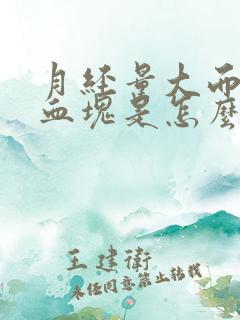 月经量大而
血块是怎麽
王建衛
未经同意禁止转载